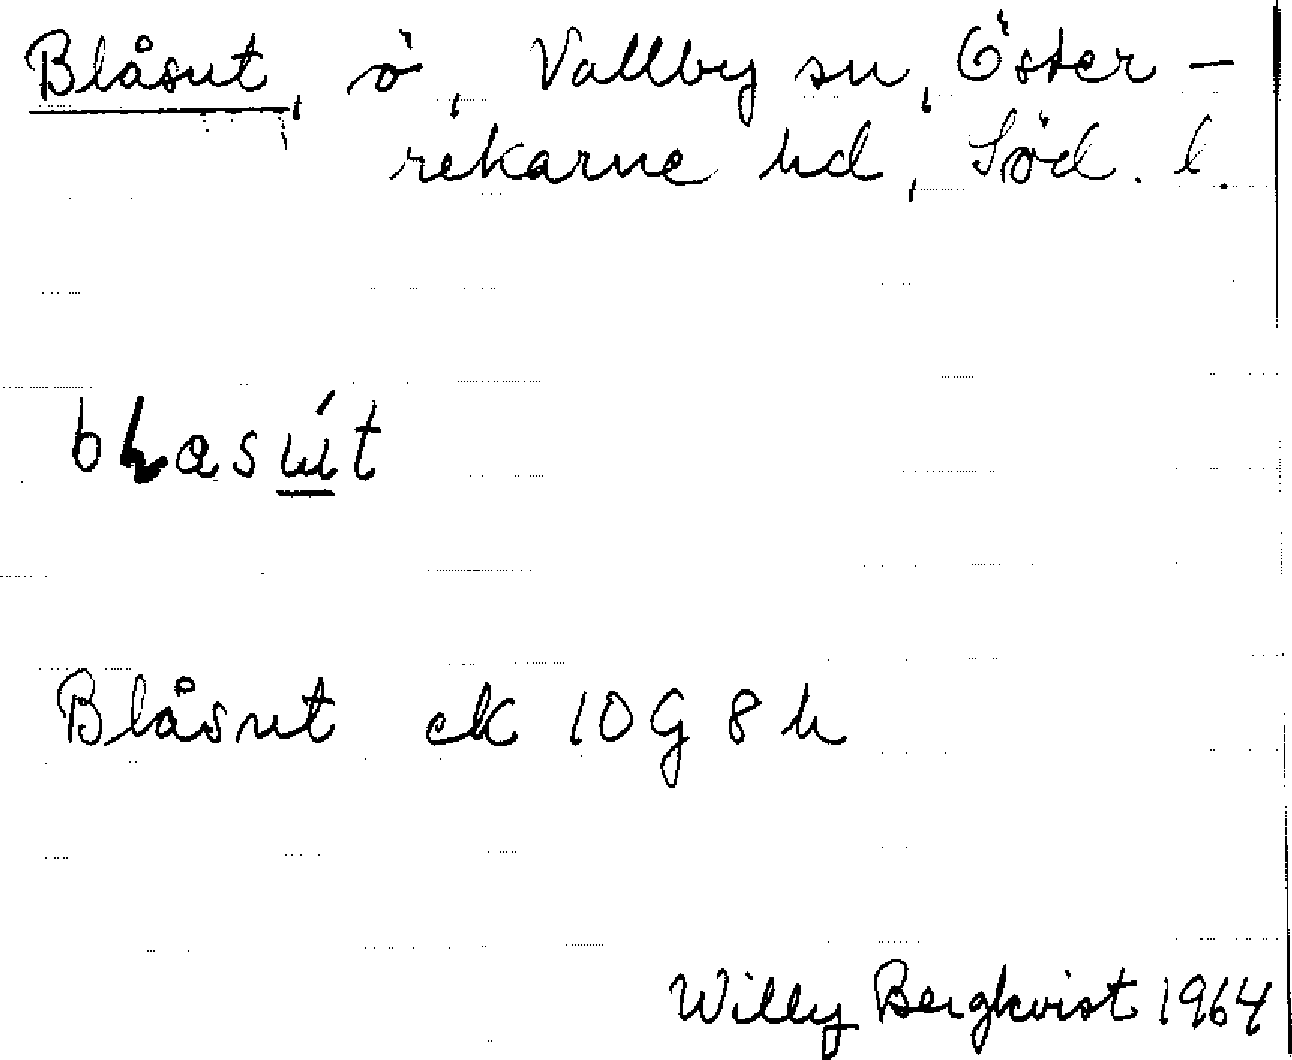 Blåsut, ö, Vallby sn, Öster-
rekarne hd, Söd. l.
Blåsut ek 10G 8h
Willy Bergkvist 1964